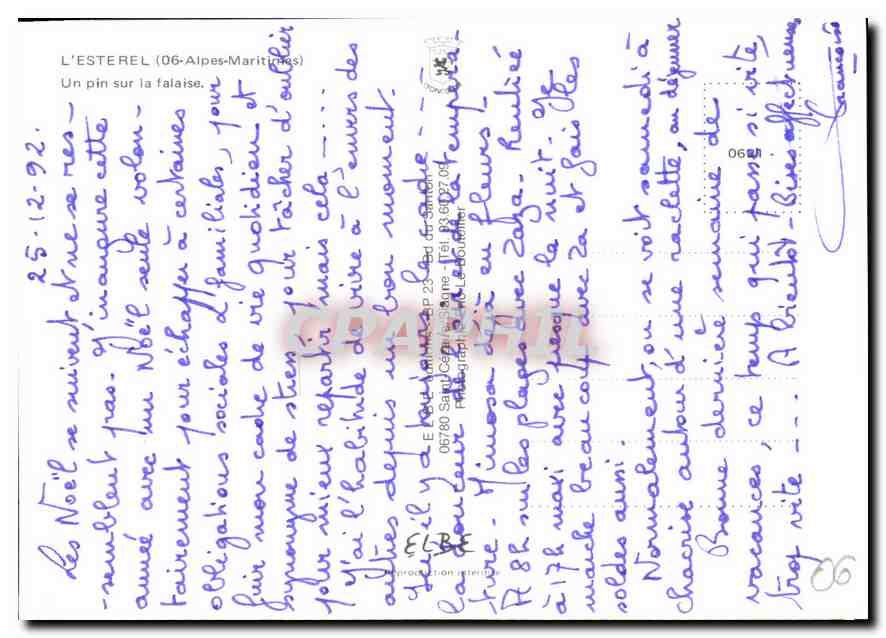 L'ESTEREL (06-Alpes-Maritimes)
Un pin sur la falaise.
25-12-92.
Les Noël se suivent et ne se res-
-semblent pas. J'inaugure cette
année avec un Noël seule volon-
tairement pour échapper à certaines
obligations sociales et familiales, pour
fuir mon cadre de vie quotidien et
synonyme de stress, pour tâcher d'oublier
pour mieux repartir, mais cela - ...
J'ai l'habitude de vivre à l'envers des
autres depuis un bon moment.
Ici il y a toujours le cadre --
la douceur du soleil et de la tempéra-
ture - Mimosa déjà en fleurs!
A 8h sur les plages avec Zaza - Rentrée
à 17h maxi avec presque la nuit. Je
marche beaucoup avec Za et fais les
soldes aussi.
Normalement, on se voit samedi à
Chaorise autour d'une raclette, au déjeuner
Bonne dernière semaine de
vacances, ce temps qui passe si vite,
trop vite - ... A bientôt - Bises affectueuses
Françoise
ELBE
Reproduction interdite
06780 Saint Cézaire Siagne - Tél. 93.60.27.09
Photographie Eric Le Boutoiller
CPAPHIL
06